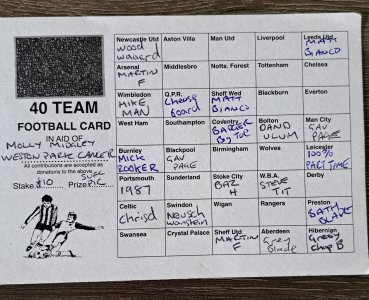 40 TEAM
FOOTBALL CARD
IN AID OF
MOLLY MIDGLEY
WESTON PARK CANCER
All contributions are accepted as
donations to the above
Stake £10
SUEE
P.C
Newcastle Utd Aston Villa Man Utd Liverpool Leeds Utd
wood
waward
MATT
BIANCO
Arsenal Middlesbro Notts. Forest Tottenham Chelsea
MARTIN
F
Wimbledon Q.P.R. Sheff Wed Blackburn Everton
MIKE
MAN
Cheese
board
MATT
BIANCO
West Ham Southampton Coventry Bolton Man City
BARKER
BIG TOE
DAND
ULUM
GAV
PAGE
Burnley Blackpool Birmingham Wolves Leicester
MICK
ROOKER
GAV
PAGE
100%
PART TIME
Portsmouth Sunderland Stoke City W.B.A. Derby
1987
BAZ
H
STEVE
TIT
Celtic Swindon Wigan Rangers Preston
chrisd
Neusch
wanstein
BATH
BLADE
Swansea Crystal Palace Sheff Utd Aberdeen Hibernian
MARTIN
F
Grey
Blade
Greasy
Chip B